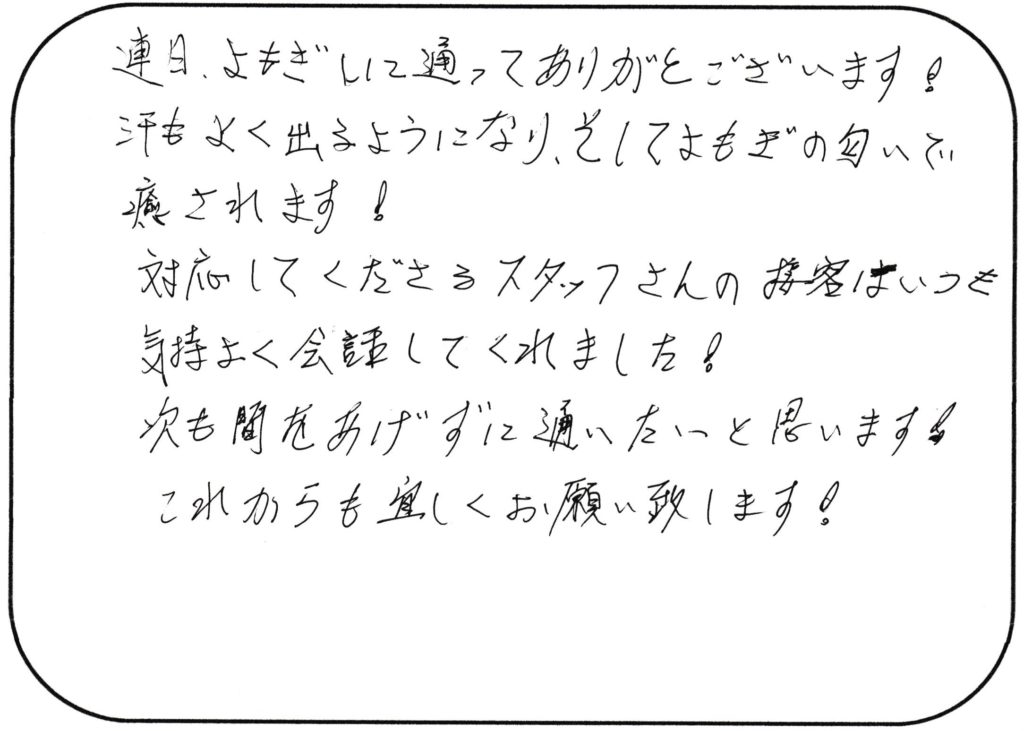 連日、よもぎしに通ってありがとございます!
汗もよく出るようになり、そしてよもぎの匂いで
癒されます!
対応してくださるスタッフさんの接客はいつも
気持よく会話してくれました!
次も間をあげずに通いたいっと思います!
これからも宜しくお願い致します!